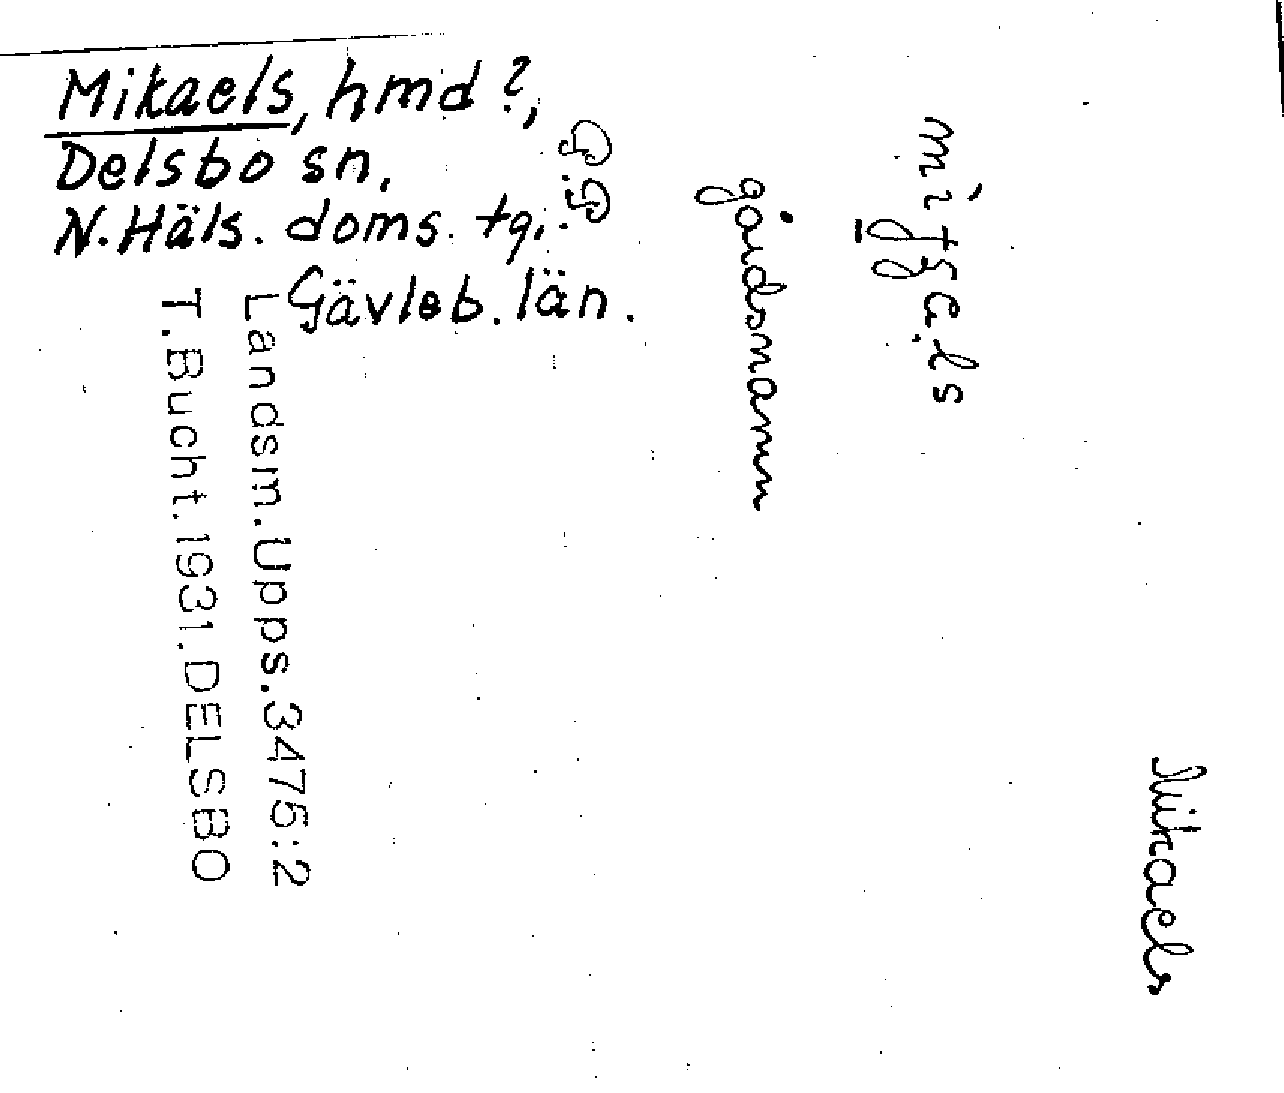 Mikaels, hmd?,
Delsbo sn.
N. Häls. doms. tg.
Gävleb. län.
Mikaels
gårdsnamn
Landsm. Upps. 3475:2
T. Bucht. 1931. DELSBO